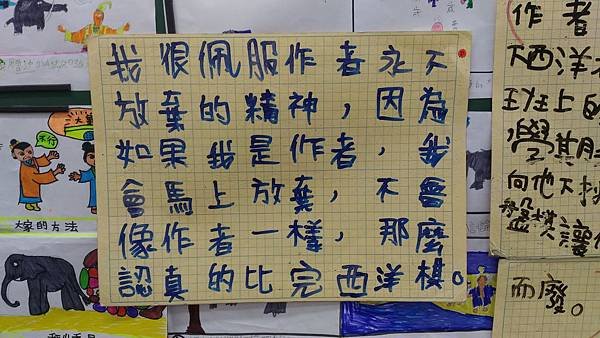 我很佩服作者永不
放棄的精神，因為
如果我是作者，我
會馬上放棄，不會
像作者一樣，那麼
認真的比完西洋棋。
作者
下西洋
班上的
，學其
向他下
讓
而廢。
大家的方法